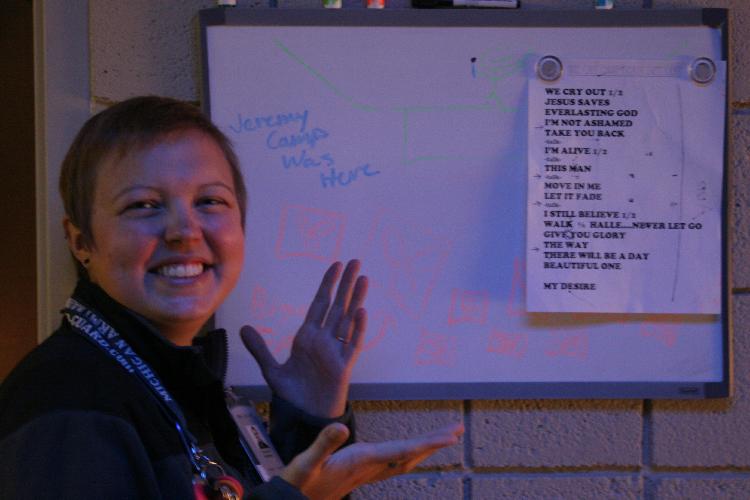 Jeremy
Camp
Was
Here
WE CRY OUT 1/2
JESUS SAVES
EVERLASTING GOD
I'M NOT ASHAMED
TAKE YOU BACK
-talk-
I'M ALIVE 1/2
-talk-
THIS MAN
-talk-
MOVE IN ME
LET IT FADE
-talk-
I STILL BELIEVE 1/2
WALK HALLE....NEVER LET GO
GIVE YOU GLORY
THE WAY
THERE WILL BE A DAY
BEAUTIFUL ONE
MY DESIRE
MICHIGAN